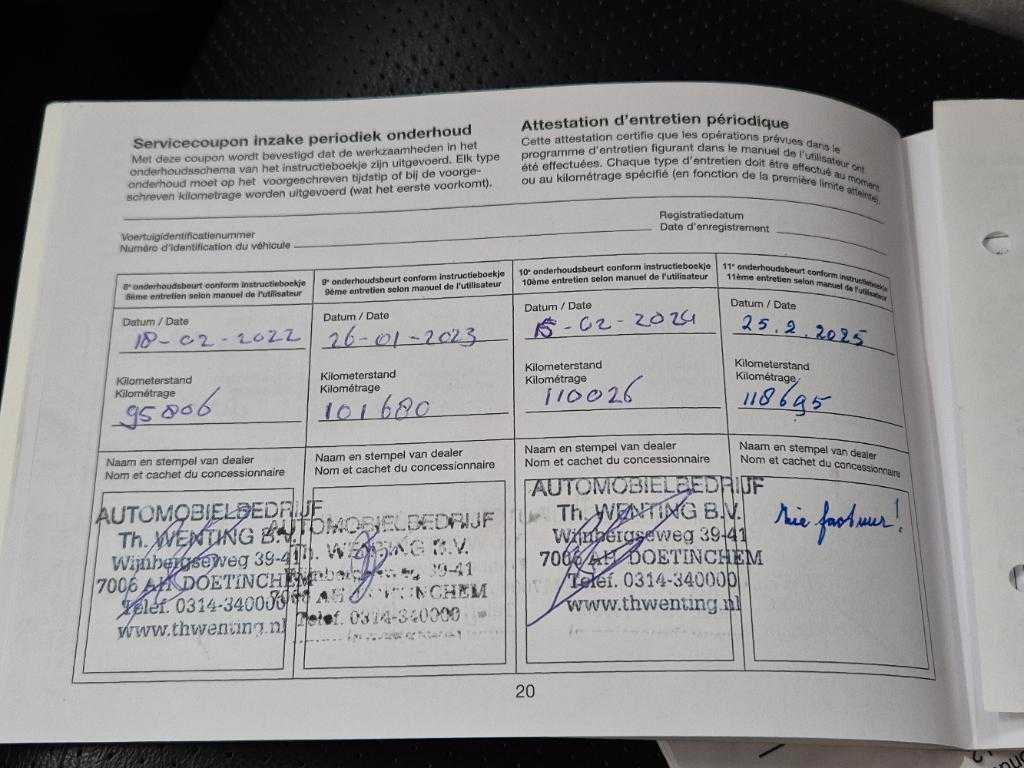 Servicecoupon inzake periodiek onderhoud
Met deze coupon wordt bevestigd dat de werkzaamheden in het
onderhoudsschema van het instructieboekje zijn uitgevoerd. Elk type
onderhoud moet op het voorgeschreven tijdstip of bij de voorge-
schreven kilometrage worden uitgevoerd (wat het eerste voorkomt).
Attestation d'entretien périodique
Cette attestation certifie que les opérations prévues dans le
programme d'entretien figurant dans le manuel de l'utilisateur ont
été effectuées. Chaque type d'entretien doit être effectué au moment
ou au kilométrage spécifié (en fonction de la première limite atteinte).
Voertuigidentificatienummer
Numéro d'identification du véhicule
Registratiedatum
Date d'enregistrement
8e onderhoudsbeurt conform instructieboekje
8ème entretien selon manuel de l'utilisateur
Datum / Date
18-02-2022
Kilometerstand
Kilométrage
95806
Naam en stempel van dealer
Nom et cachet du concessionnaire
AUTOMOBIELBEDRIJF
Th. WENTING B.V.
Wijnbergseweg 39-41
7006 AH DOETINCHEM
Telef. 0314-340000
www.thwenting.nl
9e onderhoudsbeurt conform instructieboekje
9ème entretien selon manuel de l'utilisateur
Datum / Date
26-01-2023
Kilometerstand
Kilométrage
101680
Naam en stempel van dealer
Nom et cachet du concessionnaire
AUTOMOBIELBEDRIJF
Th. WENTING B.V.
39-41
7006 AH DOETINCHEM
Telef. 0314-340000
10e onderhoudsbeurt conform instructieboekje
10ème entretien selon manuel de l'utilisateur
Datum / Date
15-02-2024
Kilometerstand
Kilométrage
110026
Naam en stempel van dealer
Nom et cachet du concessionnaire
AUTOMOBIELBEDRIJF
Th. WENTING B.V.
Wijnbergseweg 39-41
7006 AH DOETINCHEM
Telef. 0314-340000
www.thwenting.nl
11e onderhoudsbeurt conform instructieboekje
11ème entretien selon manuel de l'utilisateur
Datum / Date
25.2.2025
Kilometerstand
Kilométrage
118695
Naam en stempel van dealer
Nom et cachet du concessionnaire
zie factuur!
20